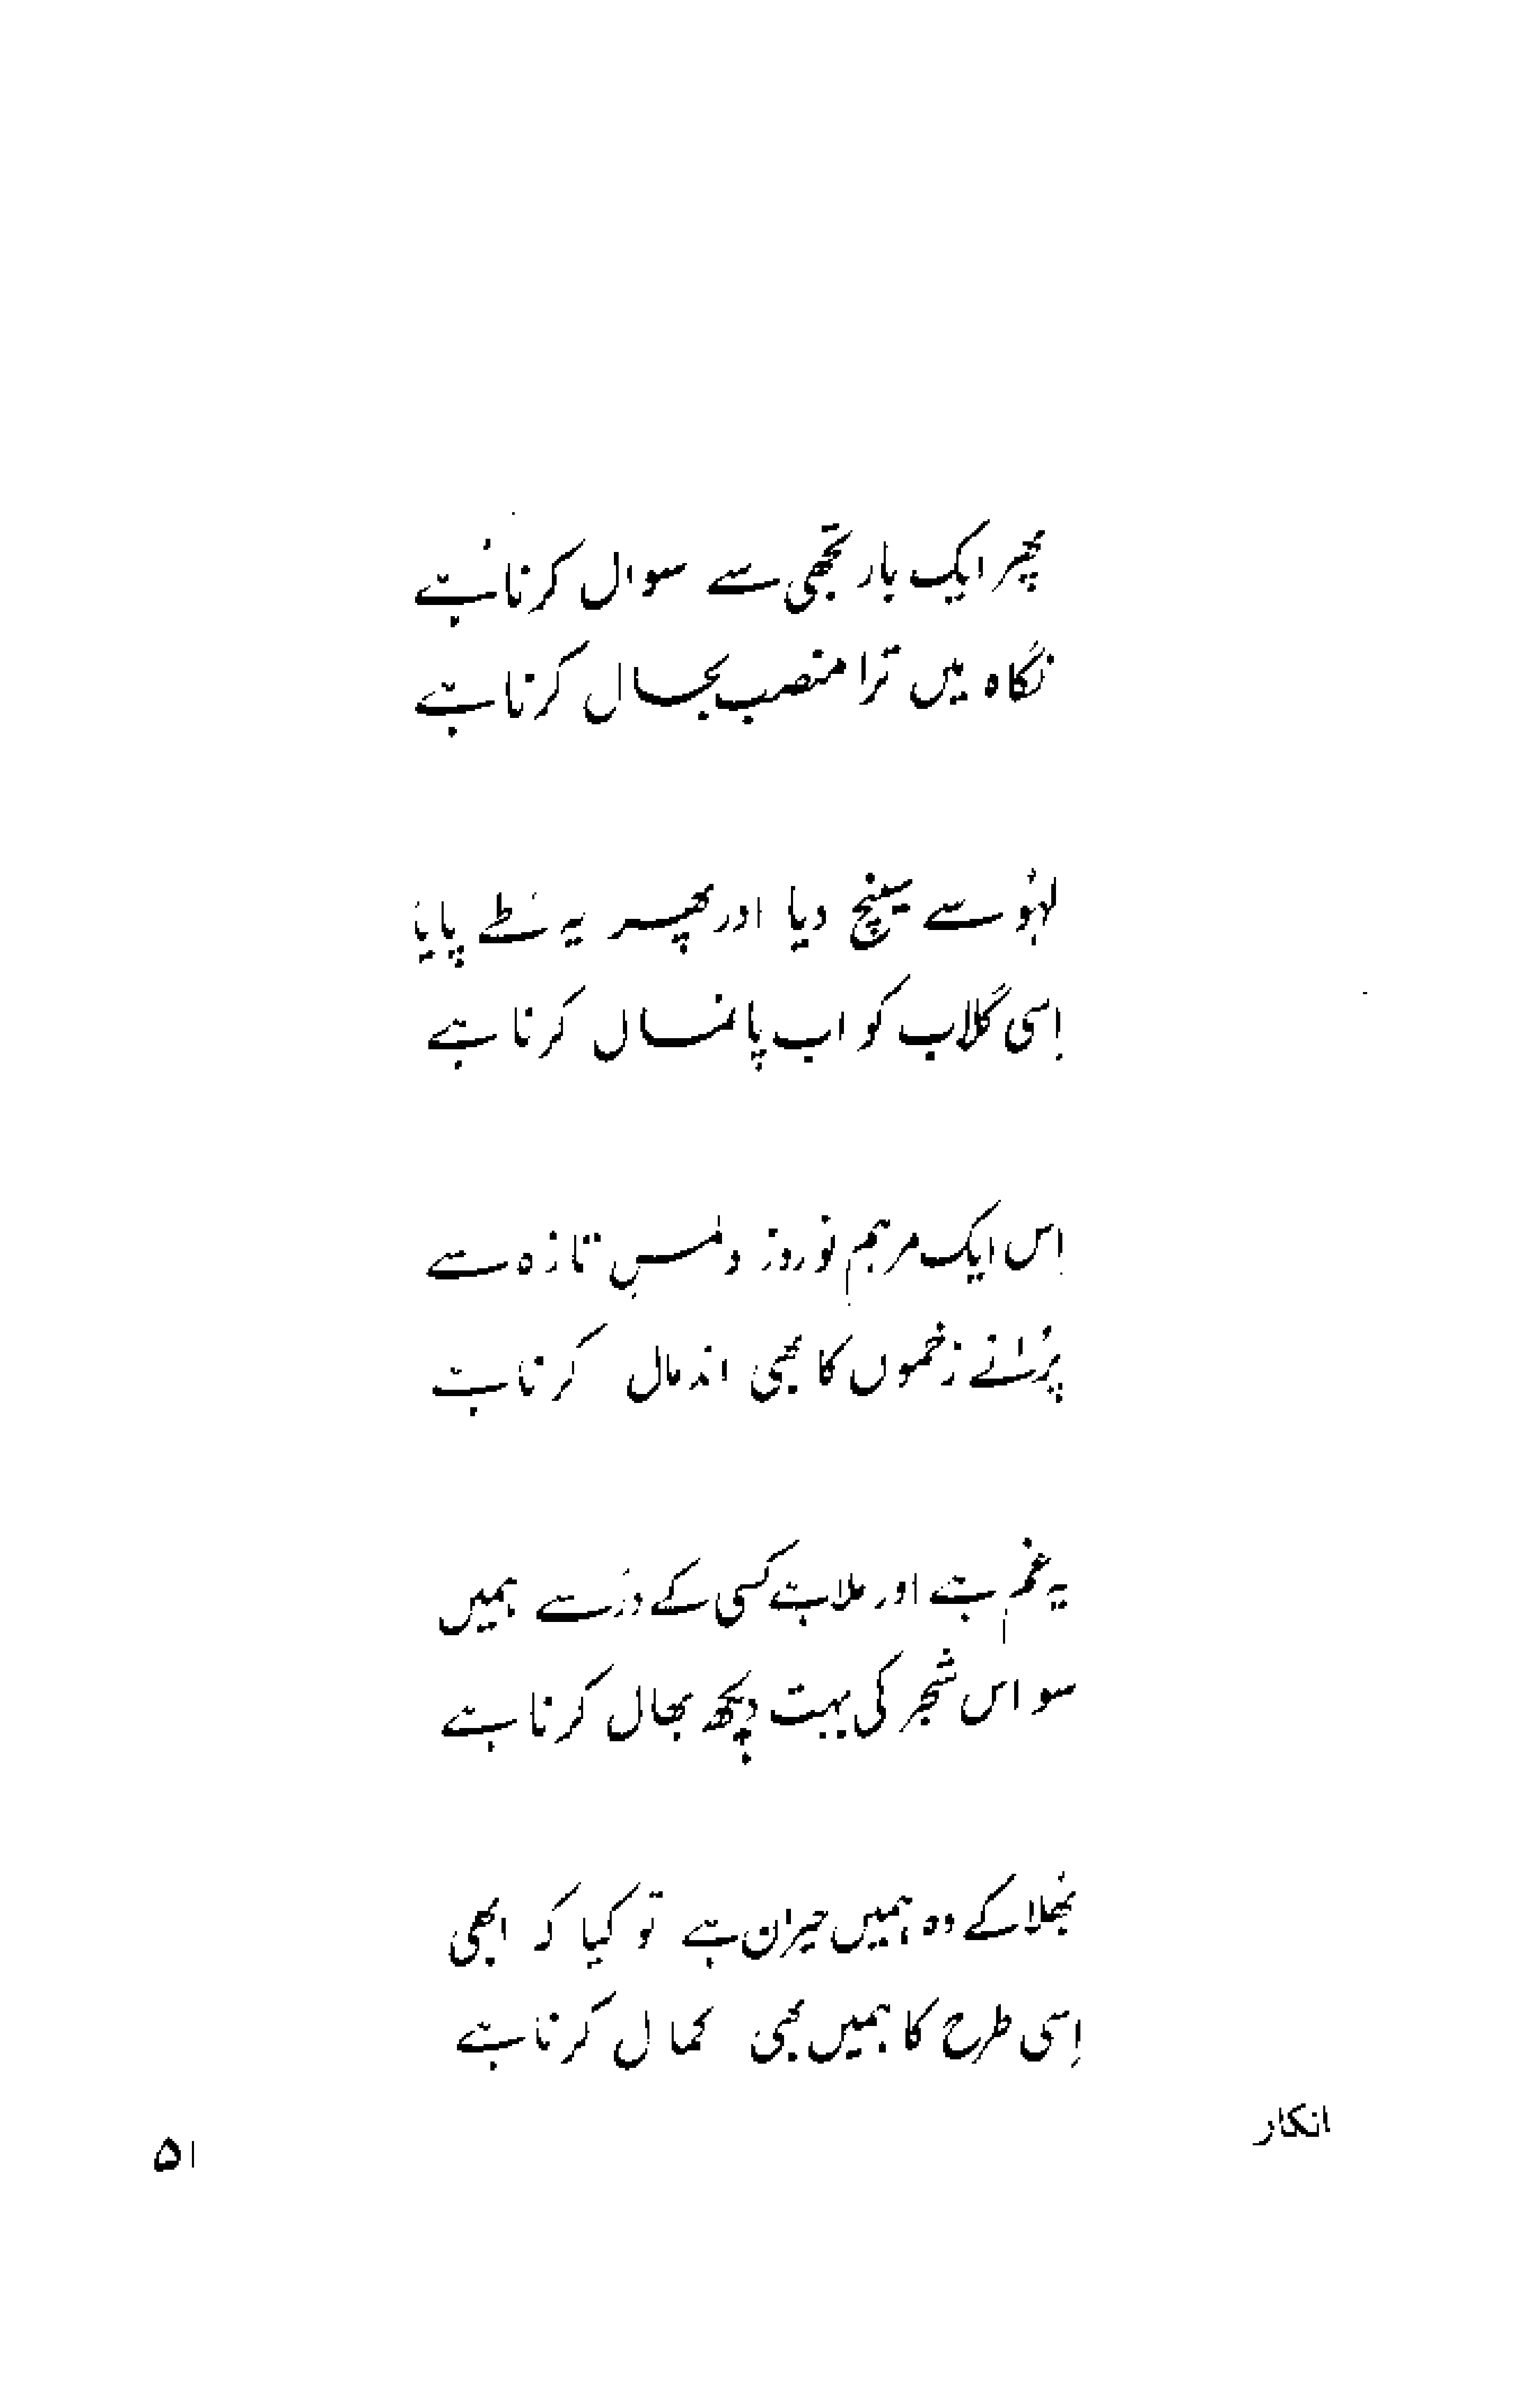 پھر ایک بار تجھی سے سوال کرنا ہے
نگاہ میں ترا منصب بحال کرنا ہے
لہُو سے سینچ دیا اور پھر یہ طے پایا
اِسی گلاب کو اب پائمال کرنا ہے
اِس ایک مرہمِ نوروز و لمسِ تازہ سے
پُرانے زخموں کا بھی اندمال کرنا ہے
یہ غم ہے اور ملا ہے کسی کے در سے ہمیں
سو اس شجر کی بہت دیکھ بھال کرنا ہے
بھُلا کے وہ ہمیں حیران ہے تو کیا کہ ابھی
اِسی طرح کا ہمیں بھی کمال کرنا ہے
انکار
۵۱